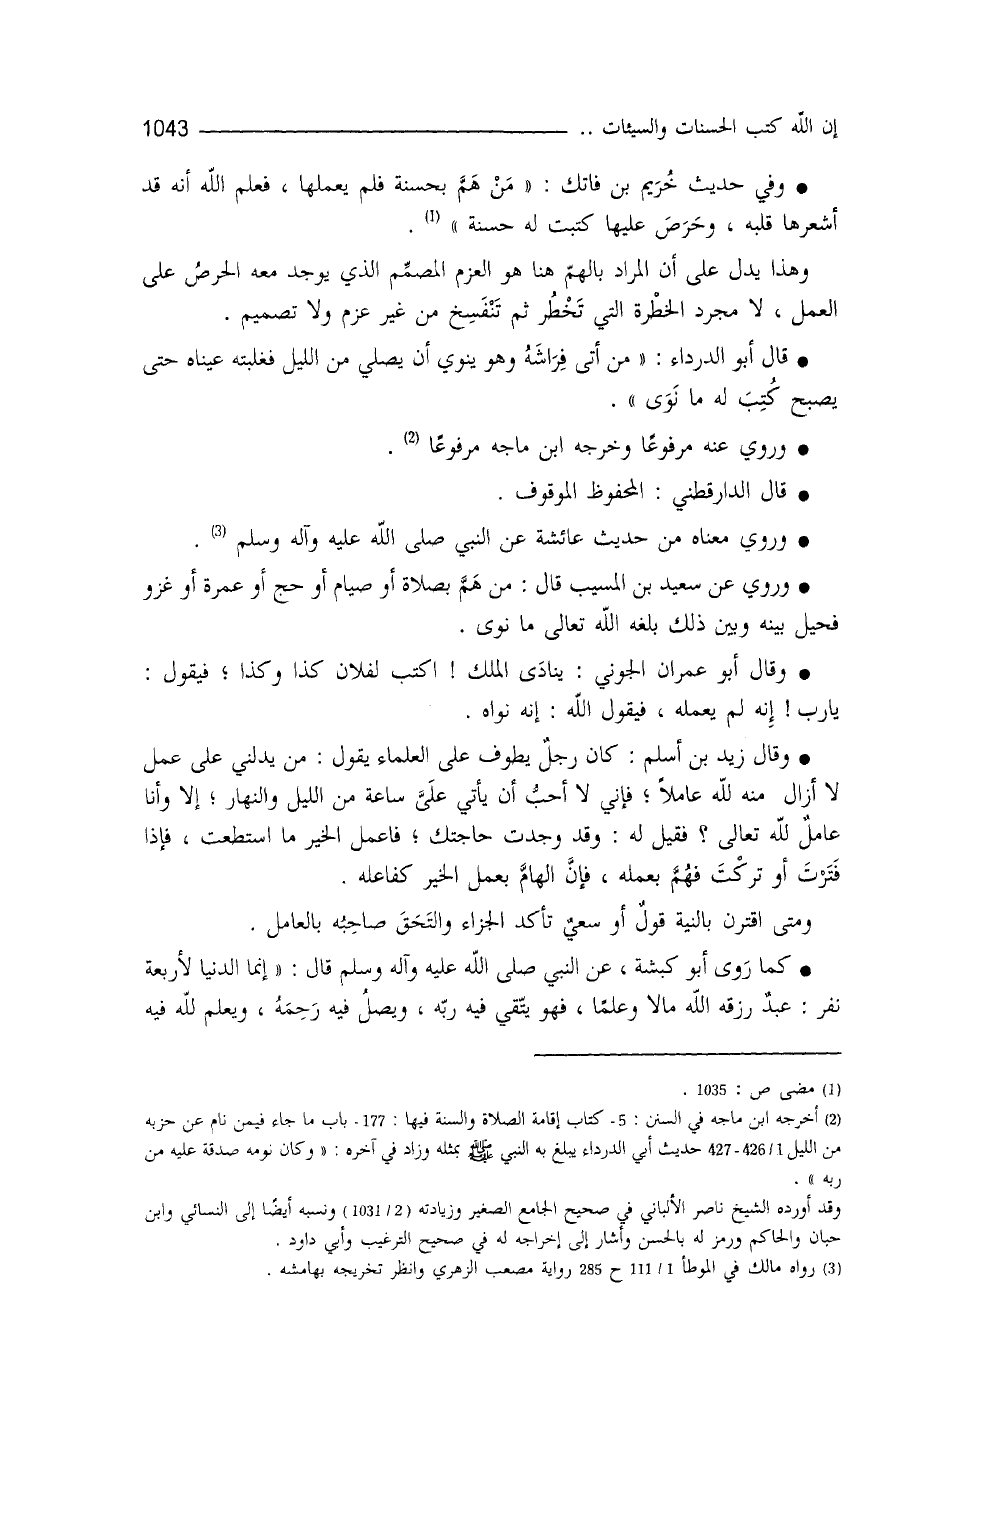 إن اللّه كتب الحسنات والسيئات .. 1043
● وفي حديث خُرَيم بن فاتك : « مَنْ هَمَّ بحسنة فلم يعملها ، فعلم اللّه أنه قد
أشعرها قلبه ، وحَرَصَ عليها كتبت له حسنة » (1) .
وهذا يدل على أن المراد بالهمّ هنا هو العزم المصمِّم الذي يوجد معه الحرصُ على
العمل ، لا مجرد الخطْرة التي تَخْطُر ثم تَنْفَسِخ من غير عزم ولا تصميم .
● قال أبو الدرداء : « من أتى فِرَاشَهُ وهو ينوي أن يصلي من الليل فغلبته عيناه حتى
يصبح كُتِبَ له ما نَوَى » .
● وروي عنه مرفوعًا وخرجه ابن ماجه مرفوعًا (2) .
● قال الدارقطني : المحفوظ الموقوف .
● وروي معناه من حديث عائشة عن النبي صلى اللّه عليه وآله وسلم (3) .
● وروي عن سعيد بن المسيب قال : من هَمَّ بصلاة أو صيام أو حج أو عمرة أو غزو
فحيل بينه وبين ذلك بلغه اللّه تعالى ما نوى .
● وقال أبو عمران الجوني : ينادَى الملك ! اكتب لفلان كذا وكذا ؛ فيقول :
يارب ! إِنه لم يعمله ، فيقول اللّه : إنه نواه .
● وقال زيد بن أسلم : كان رجلٌ يطوف على العلماء يقول : من يدلني على عمل
لا أزال منه للّه عاملاً ؛ فإني لا أحبُّ أن يأتي علَىَّ ساعة من الليل والنهار ؛ إلا وأنا
عاملٌ للّه تعالى ؟ فقيل له : وقد وجدت حاجتك ؛ فاعمل الخير ما استطعت ، فإذا
فَتَرْتَ أو تركْتَ فهُمَّ بعمله ، فإنَّ الهامَّ بعمل الخير كفاعله .
ومتى اقترن بالنية قولٌ أو سعيٌ تأكد الجزاء والتَحَقَ صاحِبُه بالعامل .
● كما رَوى أبو كبشة ، عن النبي صلى اللّه عليه وآله وسلم قال : « إنما الدنيا لأربعة
نفر : عبدٌ رزقه اللّه مالا وعلمًا ، فهو يتّقي فيه ربّه ، ويصلُ فيه رَحِمَهُ ، ويعلم للّه فيه
(1) مضى ص : 1035 .
(2) أخرجه ابن ماجه في السنن : 5- كتاب إقامة الصلاة والسنة فيها : 177- باب ما جاء فيمن نام عن حزبه
من الليل 1/ 426-427 حديث أبي الدرداء يبلغ به النبي ﷺ بمثله وزاد في آخره : « وكان نومه صدقة عليه من
ربه » .
وقد أورده الشيخ ناصر الألباني في صحيح الجامع الصغير وزيادته ( 2/ 1031 ) ونسبه أيضًا إلى النسائي وابن
حبان والحاكم ورمز له بالحسن وأشار إلى إخراجه له في صحيح الترغيب وأبي داود .
(3) رواه مالك في الموطأ 1/ 111 ح 285 رواية مصعب الزهري وانظر تخريجه بهامشه .